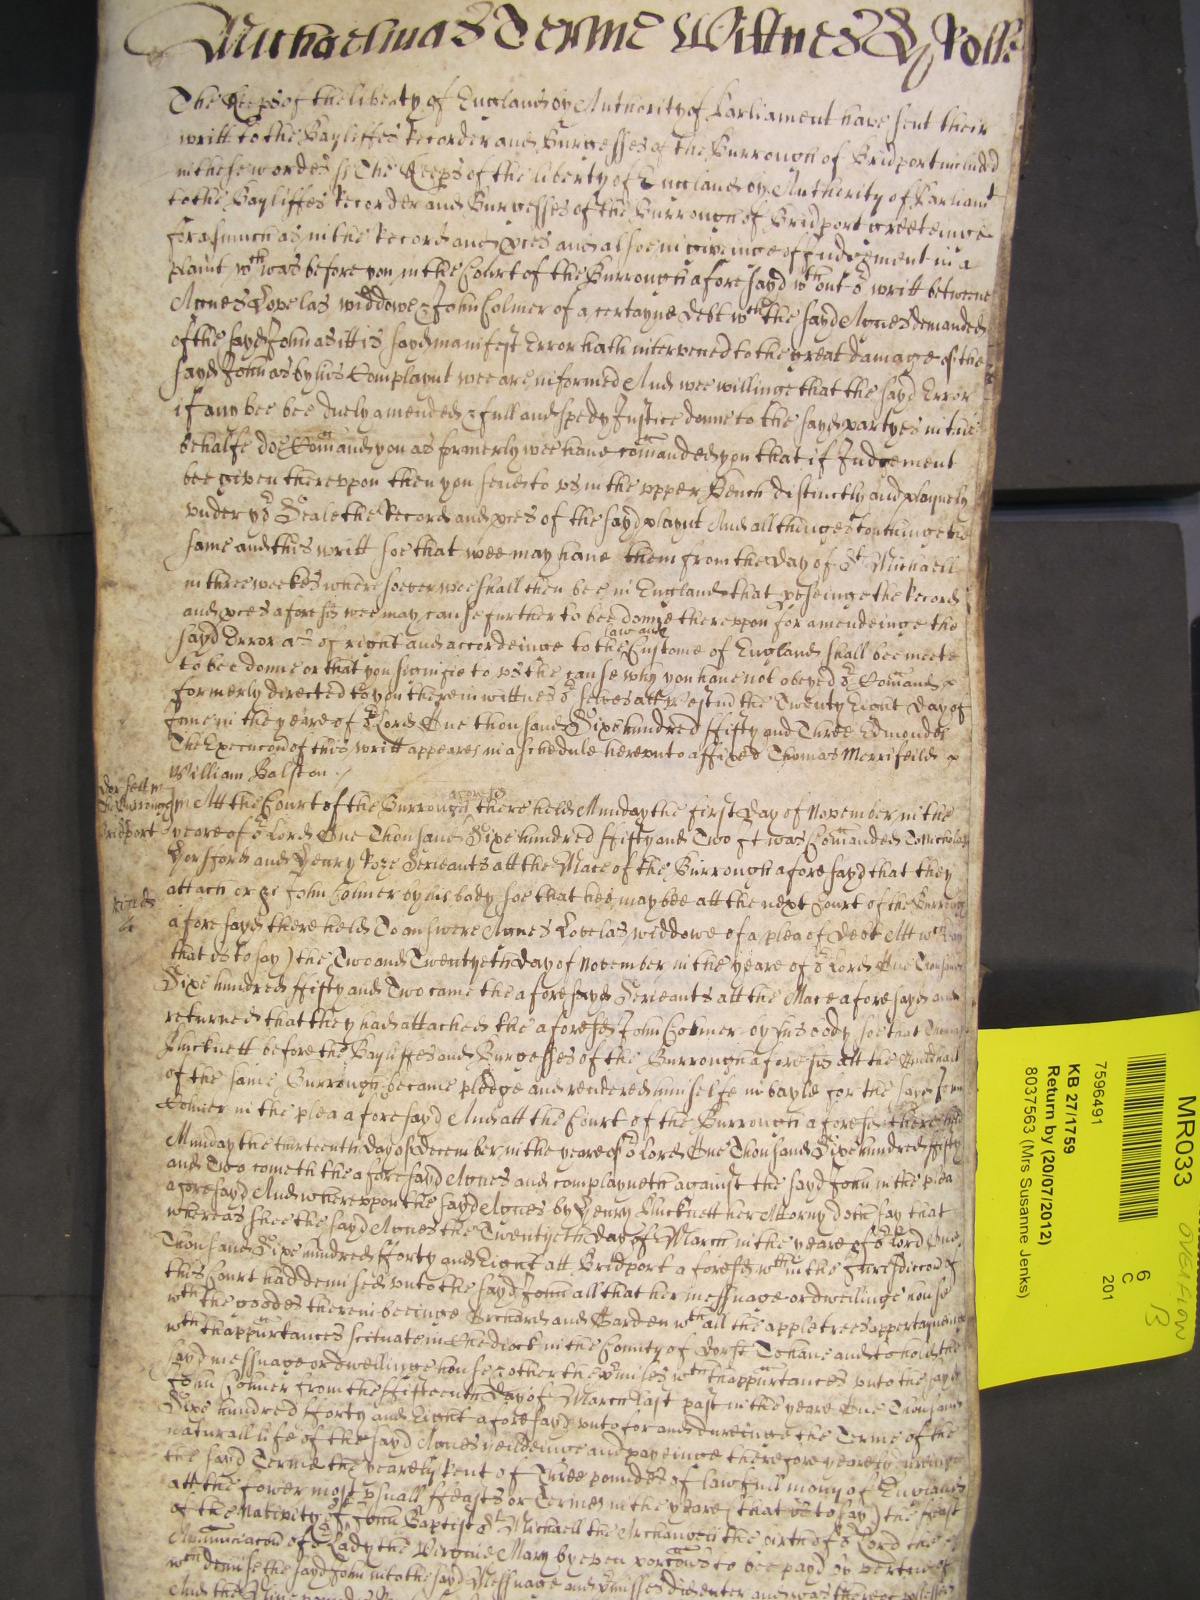 Michaelmas Terme Wittnes By Rolle
The Keeps of the liberty of England by Authority of Parliament have sent their
writt to the Bayliffes Recorder and Burgesses of the Burrough of Bridport included
in these wordes ss The Keeps of the liberty of England by Authority of Parliamt
to the Bayliffes Recorder and Burgesses of the Burrough of Bridport greeteinge
forasmuch as in the Record and pces and alsoe in giveinge of Judgement in a
plaint wch was before you in the Court of the Burrough aforesayd wthout or writt betweene
Agnes Lovelas widdowe & John Colmer of a certayne debt wch the sayd Agnes demanded
of the sayd John as itt is sayd manifest Error hath intervened to the great damage of the
sayd John as by his Complaynt wee are informed And wee willinge that the sayd Error
if any bee bee duely amended & full and spedy Justice donne to the sayd partyes in this
behalfe doe Comand you as formerly wee have comanded you that if Judgement
bee given thereuppon then you send to us in the upper Bench distinctly and playnely
under yor Seale the Record and pces of the sayd playnt And all thinges touchinge the
same and this writt soe that wee may have them from the Day of St Michaell
in three weekes wheresoever wee shall then bee in England that pσseinge the Record
and pces aforesd wee may cause further to bee donne thereuppon for amendeinge the
sayd Error as of right and accordeinge to the law and Custome of England shall bee meete
to bee donne or that you signifie to us the cause why you have not obeyed or Comand
formerly directed to you therein wittnes or selves att Westm the Twenty Eight Day of
June in the yeare of or Lord One thousand Sixe hundred ffifty and Three Edmondes
The Execucon of this writt appeares in a schedule hereunto affixed Thomas Merrifeild
William Balston
Dorsett
The Burrough
Bridport
ss Att the Court of the Burrough aforesd there held Munday the first Day of November in the
yeare of or Lord One Thousand Sixe hundred ffifty and Two It was Comanded to Nicholas
Dorsford and Henry Roze Serieants att the Mace of the Burrough aforesayd that they
attach or &c John Colmer by his body soe that hee may bee att the next Court of the Burrough
aforesayd there held To answere Agnes Lovelas widdowe of a plea of Debt Att wch Day
that is to say) the Two and Twentyeth Day of November in the yeare of or Lord One Thousand
Sixe hundred ffifty and Two came the aforesayd Serieants att the Mace aforesayd and
returned that they had attached the aforesd John Colmer by his body soe that
Hucknett before the Bayliffes and Burgesses of the Burrough aforesd att the Guildhall
of the same Burrough became pledge and rendered himselfe in bayle for the sayd John
Colmer in the plea aforesayd And att the Court of the Burrough aforesd there held
Munday the thirteenth Day of December in the yeare of or Lord One Thousand Sixe hundred ffifty
and Two cometh the aforesayd Agnes and complayneth against the sayd John in the plea
aforesayd And whereuppon the sayd Agnes by Henry Hucknett her Attorny doth say that
whereas shee the sayd Agnes the Twentyeth Day of March in the yeare of or Lord One
Thousand Sixe hundred fforty and Eight att Bridport aforesd wthin the Jurisdiccon of
this Court had demised unto the sayd John all that her messuage or dwellinge house
wth the goodes therein beeinge Orchard and Garden wth all the appletrees appertayneinge
wth thappurtances scituate in in the County of Dorst To have and to hold the
sayd messuage or dwellinge house & other the pmisses wth thappurtances unto the sayd
John Colmer from the ffifteenth Day of March last past in the yeare One Thousand
Sixe hundred fforty and Eight aforesayd unto for and dureinge the Terme of the
naturall life of the sayd Agnes yeildeinge and payeinge therefore yearely dureinge
the sayd Terme the yearely Rent of Three poundes of lawfull mony of England
att the fower most usuall ffeasts or Termes in the yeare (that is to say) the feast
of the Nativity of John Baptist St Michaell the Archangell the birth of or Lord the
Annunciacon of or Lady the Virgine Mary by even porcons to bee payd by vertue of
wch demise the sayd John into the sayd Messuage and pmisses did enter and was thereof possessed
MR033
7596491
6
C
201
KB 27/1759
Return by (20/07/2012)
8037563 (Mrs Susanne Jenks)
OVERFLOW
13